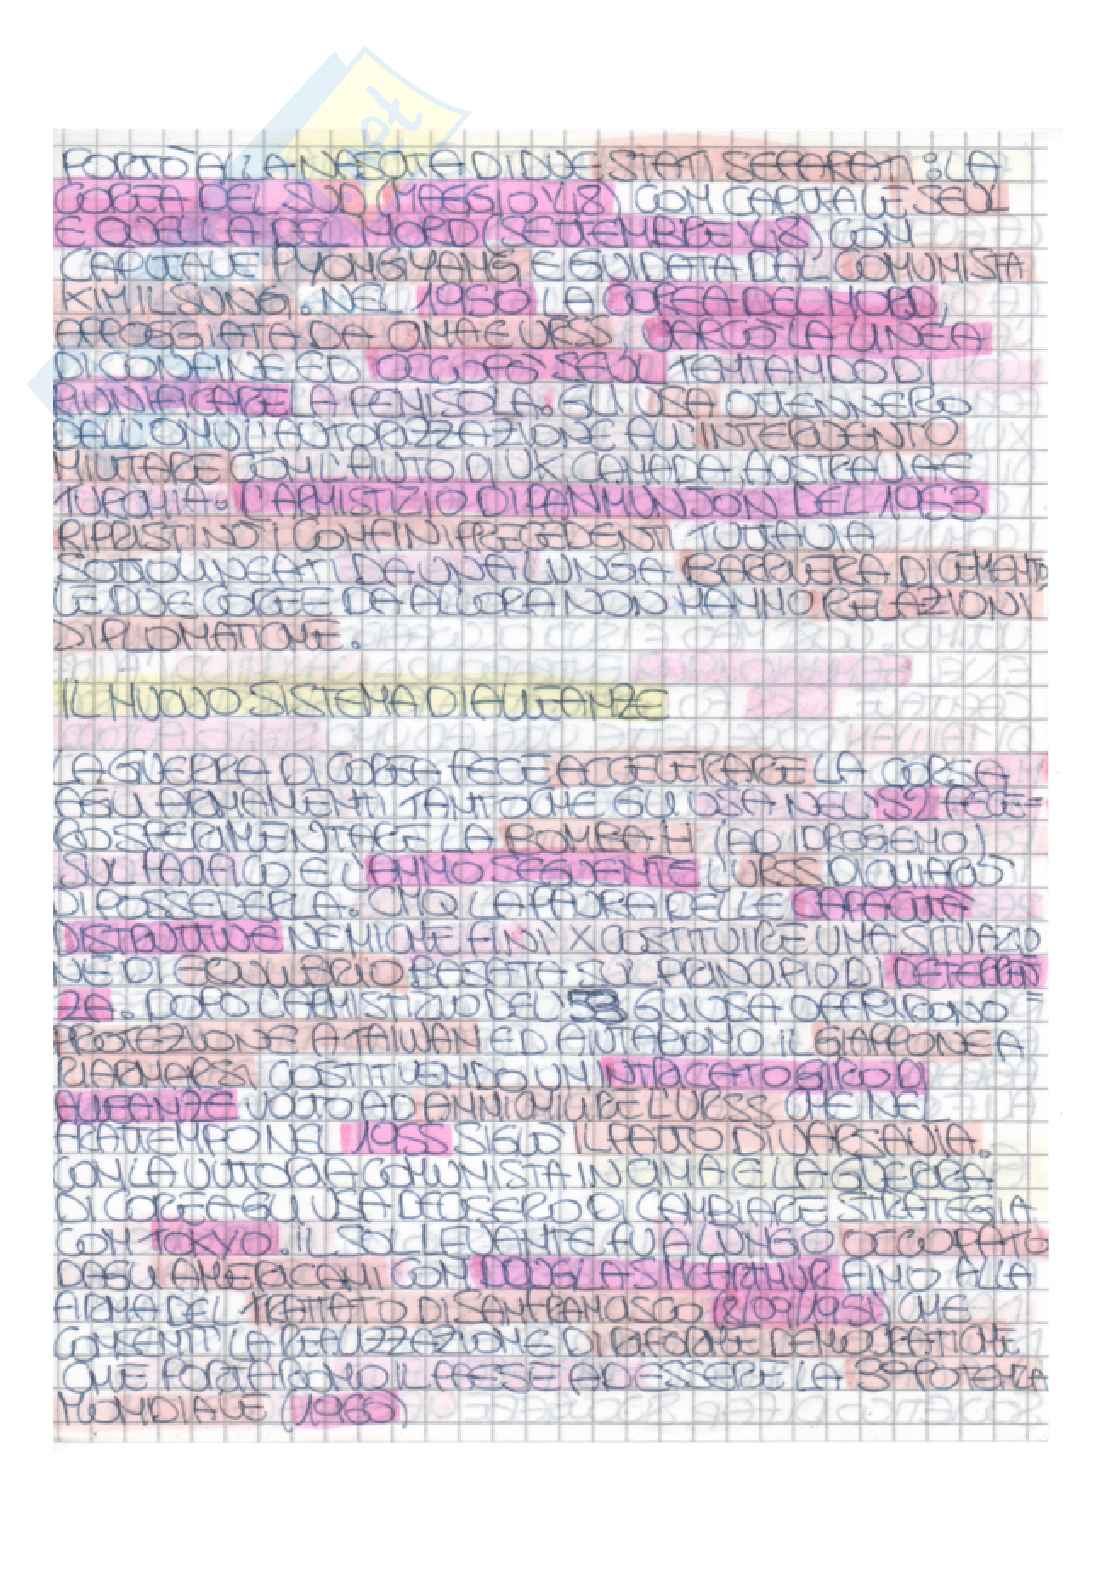 PORTÒ ALLA NASCITA DI DUE STATI SEPARATI: LA
COREA DEL SUD (MAGGIO '48) CON CAPITALE SEUL
E QUELLA DEL NORD (SETTEMBRE '48) CON
CAPITALE PYONGYANG E GUIDATA DAL COMUNISTA
KIM IL SUNG. NEL 1950 LA COREA DEL NORD,
APPOGGIATA DA CINA E URSS, VARCÒ LA LINEA
DI CONFINE ED OCCUPÒ SEUL TENTANDO DI
RIUNIFICARE LA PENISOLA. GLI USA OTTENNERO
DALL'ONU L'AUTORIZZAZIONE ALL'INTERVENTO
MILITARE CON L'AIUTO DI UK CANADA AUSTRALIA E
TURCHIA. L'ARMISTIZIO DI PANMUNJON DEL 1953
RIPRISTINÒ I CONFINI PRECEDENTI TUTTAVIA
SOTTOLINEATI DA UNA LUNGA BARRIERA DI CEMENTO
LE DUE COREE DA ALLORA NON HANNO RELAZIONI
DIPLOMATICHE.
IL NUOVO SISTEMA DI ALLEANZE
LA GUERRA DI COREA FECE ACCELERARE LA CORSA
AGLI ARMAMENTI TANTO CHE GLI USA NEL '52 FECE-
RO SPERIMENTARE LA BOMBA H (AD IDROGENO)
SUL PACIFICO E L'ANNO SEGUENTE L'URSS DICHIARÒ
DI POSSEDERLA. CMQ LA PAURA DELLE CAPACITÀ
DISTRUTTIVE NEMICHE FINÌ X COSTITUIRE UNA SITUAZIO
NE DI EQUILIBRIO BASATA SUL PRINCIPIO DI DETERREN
ZA. DOPO L'ARMISTIZIO DEL '53 GLI USA OFFRIRONO
PROTEZIONE A TAIWAN ED AIUTARONO IL GIAPPONE A
RIARMARSI COSTITUENDO UN INTRICATO GIRO DI
ALLEANZE VOLTO AD ANNICHILIRE L'URSS CHE NEL
FRATTEMPO NEL 1955 SIGLÒ IL PATTO DI VARSAVIA.
CON LA VITTORIA COMUNISTA IN CINA E LA GUERRA
DI COREA GLI USA DECISERO DI CAMBIARE STRATEGIA
CON TOKYO. IL SOL LEVANTE FU A LUNGO OCCUPATO
DAGLI AMERICANI CON DOUGLAS MCARTHUR FINO ALLA
FIRMA DEL TRATTATO DI SAN FRANCISCO (8/09/1951) CHE
CONSENTÌ LA REALIZZAZIONE DI RIFORME DEMOCRATICHE
CHE PORTARONO IL PAESE AD ESSERE LA 3ª POTENZA
MONDIALE (1960)